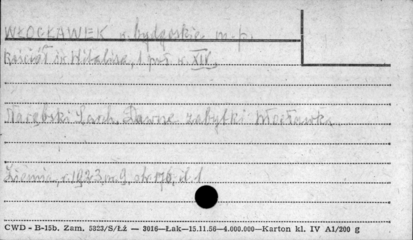 WŁOCŁAWEK w. bydgoskie m. p.
Kościół św. Witalisa, 1 poł. w. XIV.
Narębski Stefan, Dawne zabytki Włocławka
Ziemia, r. 1923, n. 9, str. 176, il. 1
CWD - B-15b. Zam. 5323/S/Łż — 3016—Łak—15.11.56—4.000.000—Karton kl. IV A1/200 g